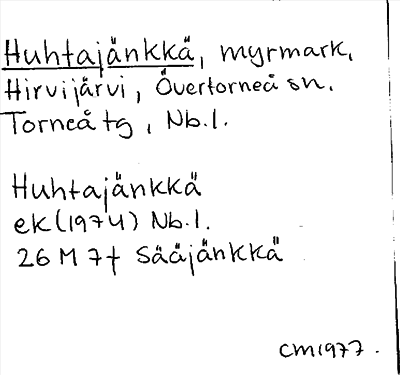 Huhtajänkkä, myrmark,
Hirvijärvi, Övertorneå sn.
Torneå tg, Nb.l.
Huhtajänkkä
ek (1974) Nb.l.
26 M 7f Sääjänkkä
CM 1977.